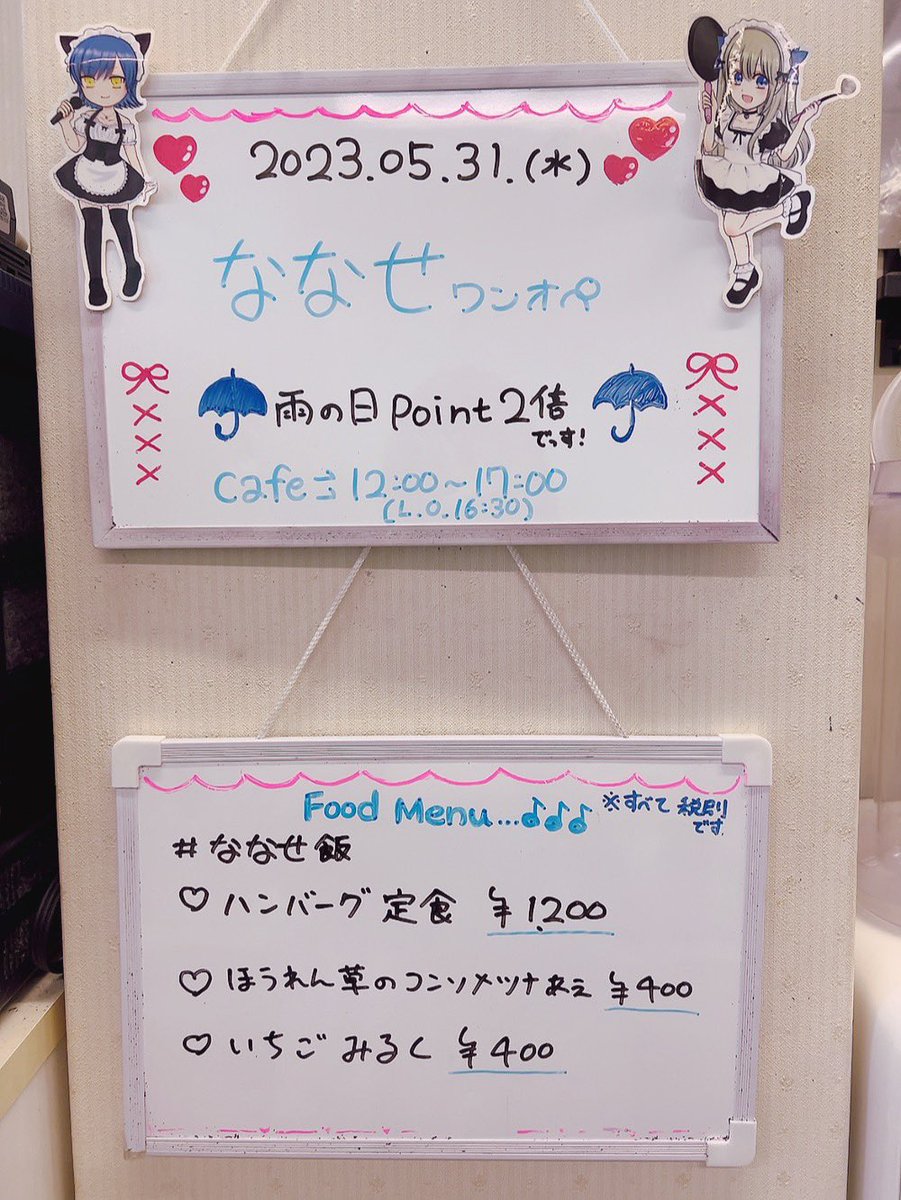 2023.05.31.(水)
ななせワンオペ
雨の日Point2倍
でっす!
Cafe⇒12:00〜17:00
(L.O.16:30)
Food Menu...♪♪♪ ※すべて税別
です
#ななせ飯
♡ハンバーグ定食 ¥1,200
♡ほうれん草のコンソメツナあえ ¥400
♡いちごみるく ¥400